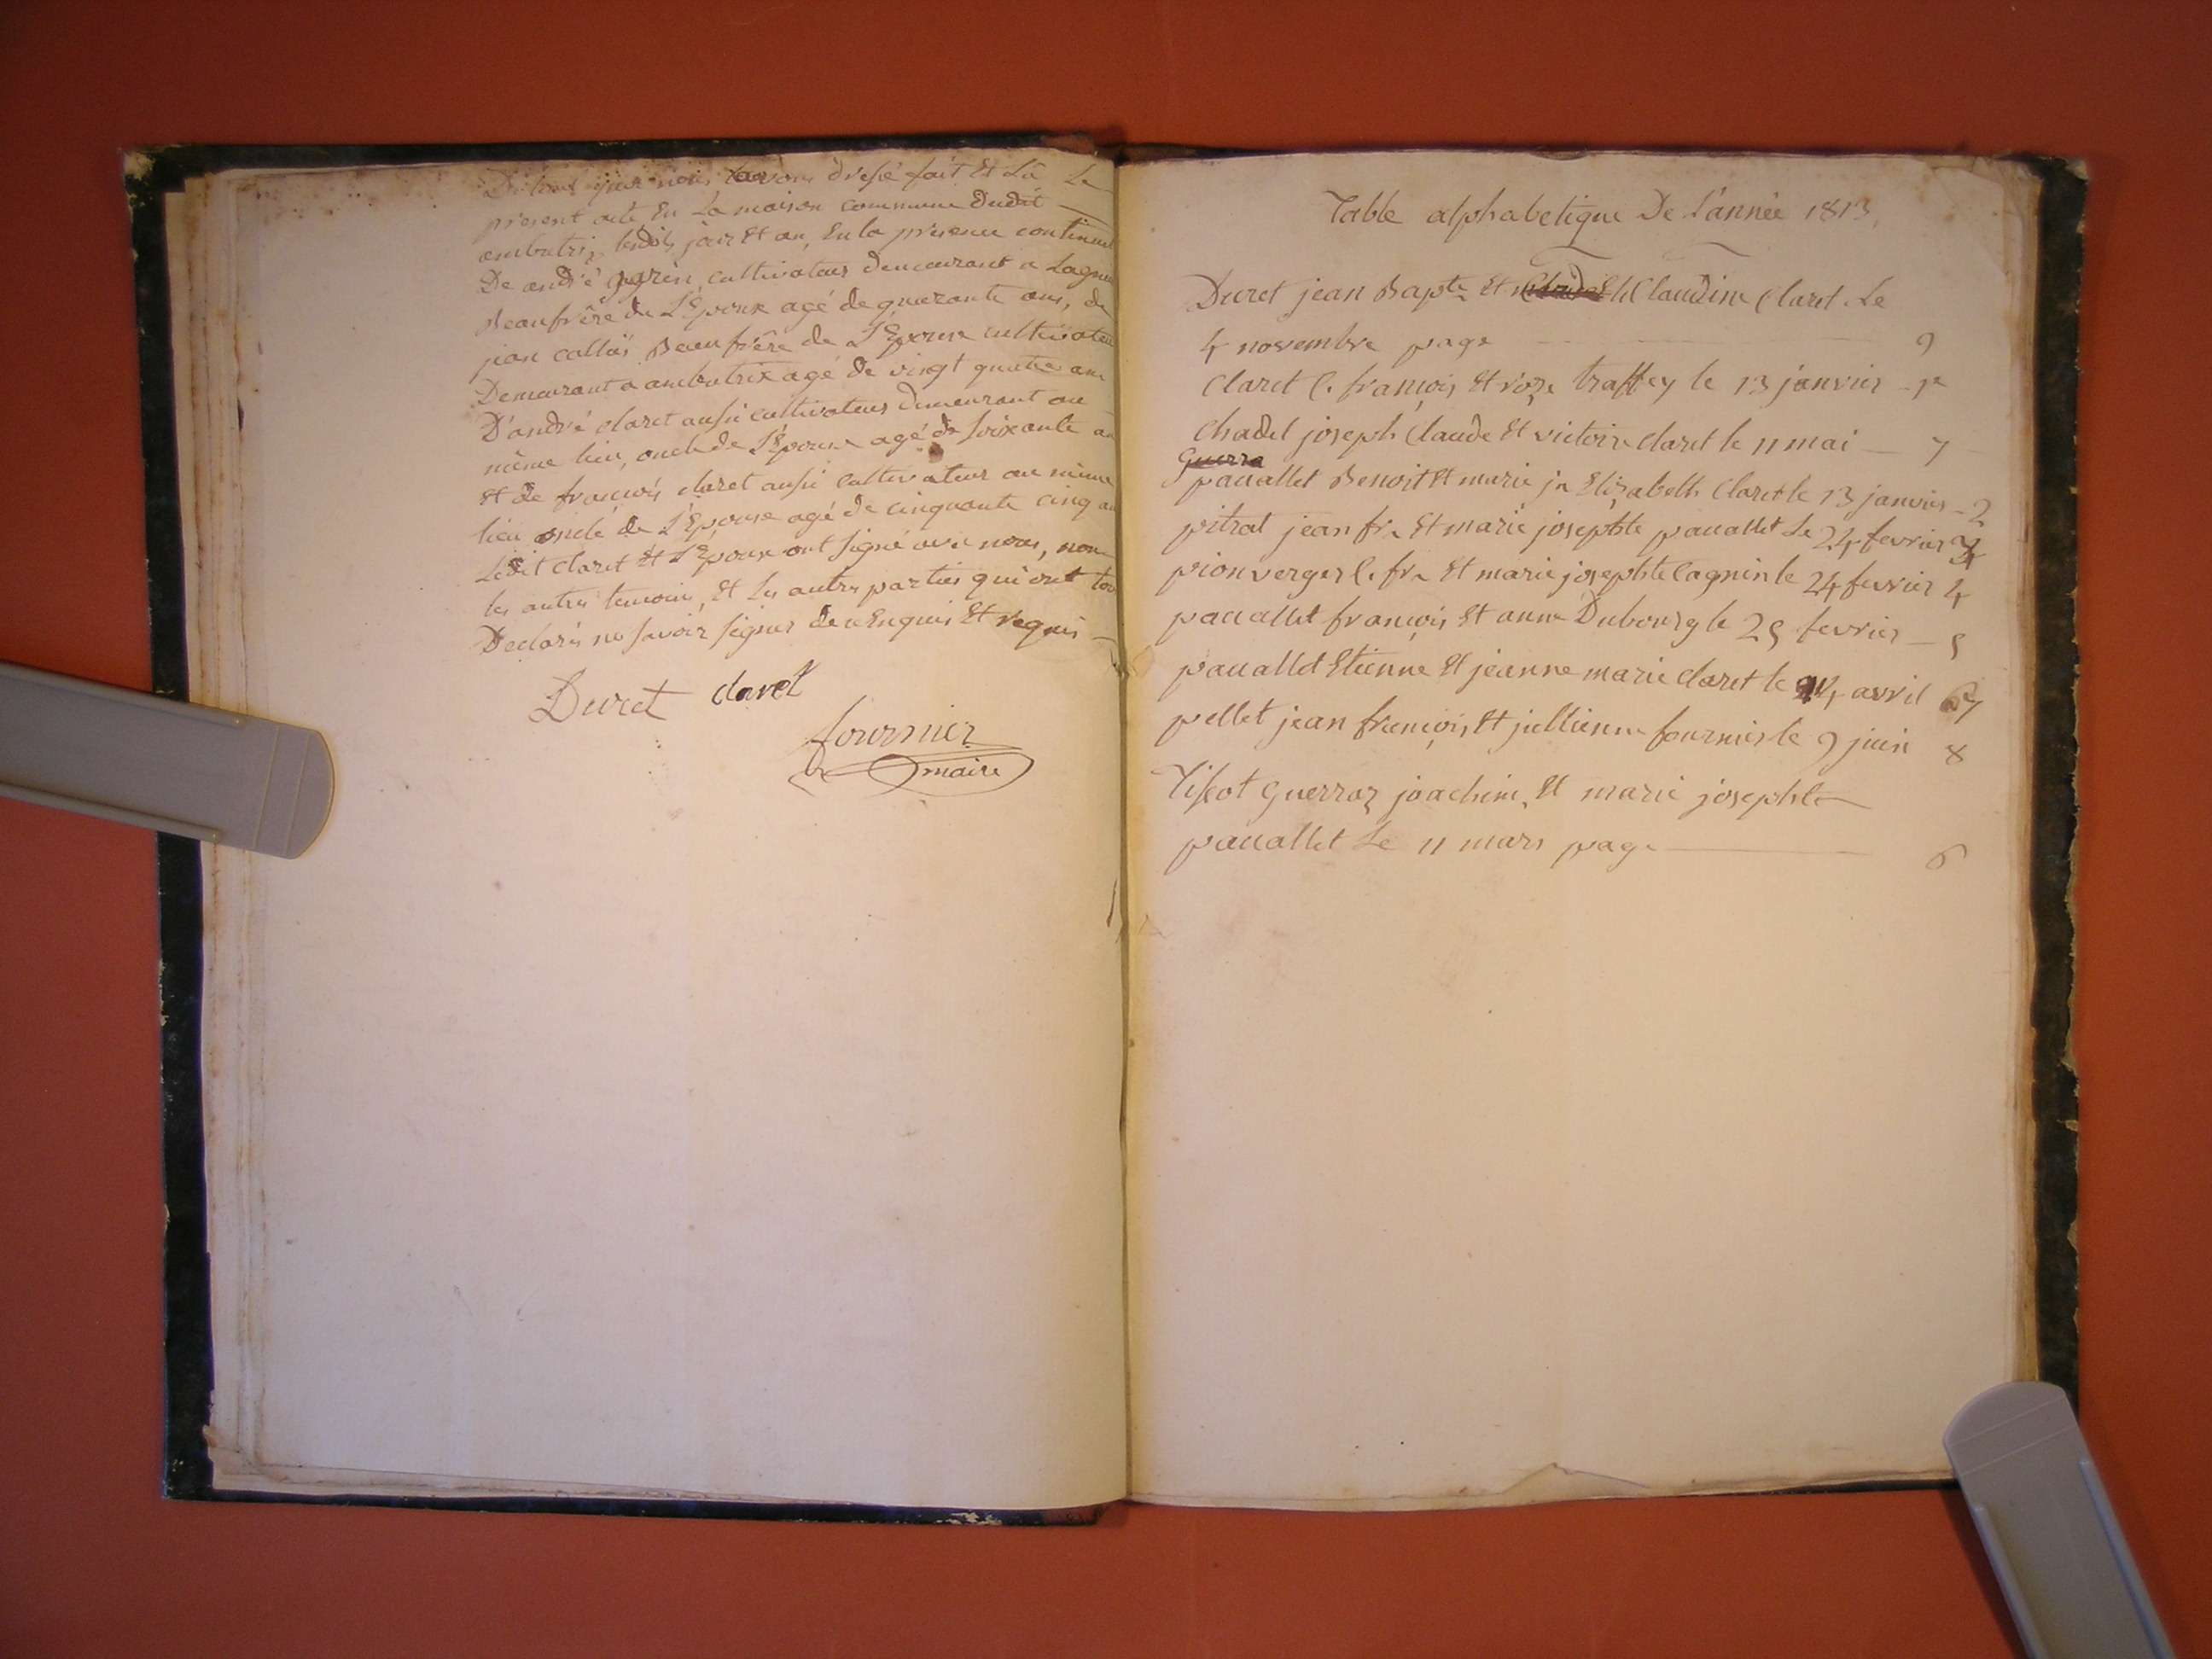 De tout quoi nous avons dressé fait et lû Le
présent acte En La maison commune dudit
ambutrix lesdits jour Et an, En la présence continuel
De andré gagnin, cultivateur demeurant a Lagnieu
Beaufrêre de L'Epoux agé de quarante ans, de
jean callás Beaufrêre de L'Epouse cultivateur
Demeurant a ambutrix agé de vingt quatre ans
D'andré claret aussi cultivateur demeurant au
même lieu, oncle de L'Epouse agé de soixante an
Et de françois claret aussi cultivateur au même
lieu oncle de L'Epouse agé de cinquante cinq an
Ledit claret Et L'Epoux ont signé avec nous, non
les autres temoins, Et les autres parties qui ont tous
Declarés ne savoir signer de ce Enquis Et requis
Duret claret
fournier
maire
Table alphabetique De L'année 1813
Duret jean Bapte Et Claudine Claret Le
4 novembre page 9
Claret C. françois Et roze traffey le 13 janvier 1er
Chadel joseph Claude Et victoire claret le 11 mai 7
Guerra
pauallet Benoit Et marie jne Elizabeth Claret le 13 janvier 2
pitrat jean fr. Et marie josephte pauallet Le 24 fevrier 3
pion verger C. fr. Et marie josephte Cagnin le 24 fevrier 4
pauallet françois Et anne Dubourg le 25 fevrier 5
pauallet Etienne Et jeanne marie claret le avril
pellet jean françois Et jullienne fournier le 9 juin 8
Tissot Guerraz joachim, Et marie josephte
pauallet Le 11 mars page 6